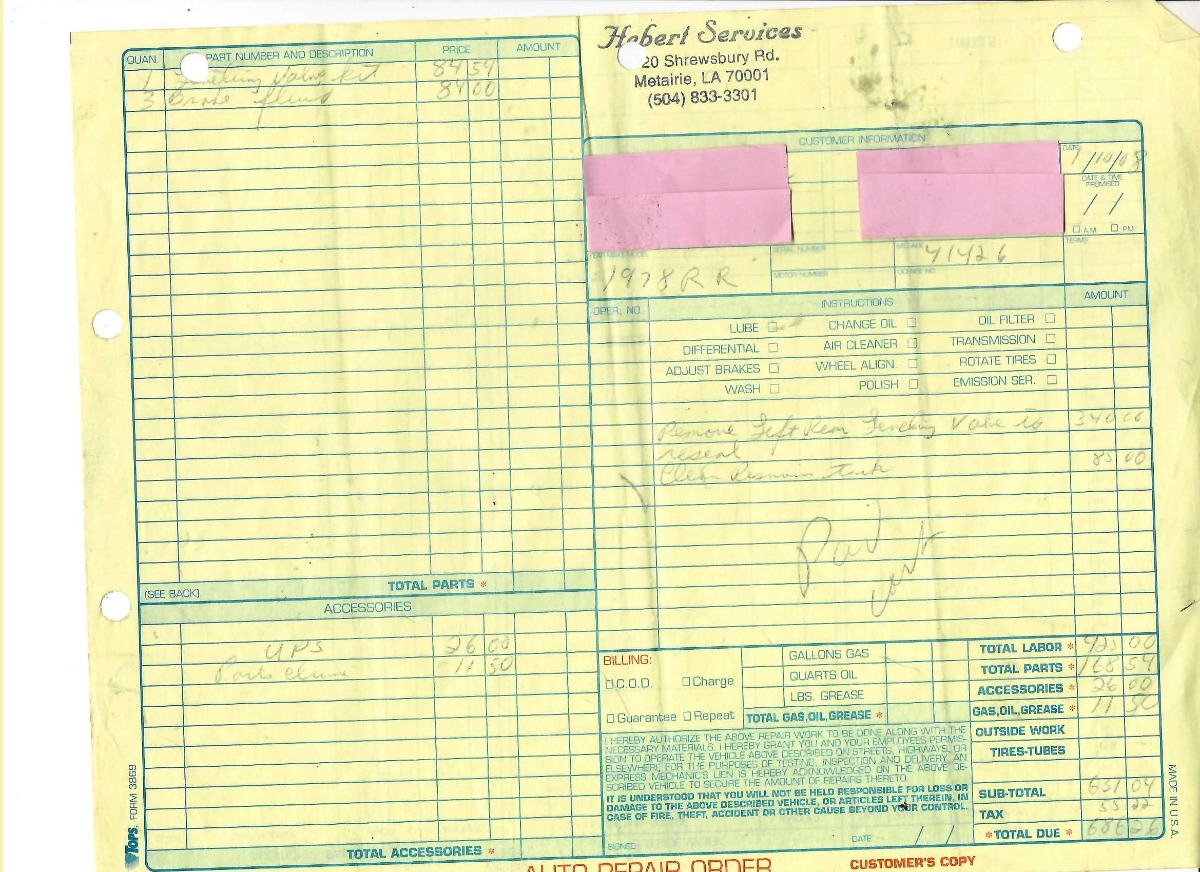 Hebert Services
20 Shrewsbury Rd.
Metairie, LA 70001
(504) 833-3301
QUAN. PART NUMBER AND DESCRIPTION PRICE AMOUNT
1 Leveling Valve Kit 84 54
3 Brake fluid 84 00
(SEE BACK) TOTAL PARTS *
ACCESSORIES
UPS 26 00
Parts Clean 11 50
TOTAL ACCESSORIES *
TOPS FORM 3869
CUSTOMER INFORMATION
DATE 1/10/08
DATE & TIME PROMISED
/ /
☐ A.M. ☐ P.M.
SERIAL NUMBER MILEAGE 41426 TERMS
1978 RR MOTOR NUMBER LICENSE NO.
OPER. NO. INSTRUCTIONS AMOUNT
LUBE ☐ CHANGE OIL ☐ OIL FILTER ☐
DIFFERENTIAL ☐ AIR CLEANER ☐ TRANSMISSION ☐
ADJUST BRAKES ☐ WHEEL ALIGN. ☐ ROTATE TIRES ☐
WASH ☐ POLISH ☐ EMISSION SER. ☐
Remove Left Rear Leveling Valve to 340 00
reseal
Clean 85 00
Paid
BILLING:
☐ C.O.D. ☐ Charge
☐ Guarantee ☐ Repeat
GALLONS GAS
QUARTS OIL
LBS. GREASE
TOTAL GAS,OIL,GREASE *
TOTAL LABOR * 425 00
TOTAL PARTS * 168 54
ACCESSORIES * 26 00
GAS,OIL,GREASE * 11 50
OUTSIDE WORK
TIRES-TUBES
SUB-TOTAL 631 04
TAX 55 22
*TOTAL DUE * 686 26
I HEREBY AUTHORIZE THE ABOVE REPAIR WORK TO BE DONE ALONG WITH THE
NECESSARY MATERIALS. I HEREBY GRANT YOU AND YOUR EMPLOYEES PERMIS-
SION TO OPERATE THE VEHICLE ABOVE DESCRIBED ON STREETS, HIGHWAYS, OR
ELSEWHERE, FOR THE PURPOSES OF TESTING, INSPECTION AND DELIVERY. AN
EXPRESS MECHANIC'S LIEN IS HEREBY ACKNOWLEDGED ON THE ABOVE DE-
SCRIBED VEHICLE TO SECURE THE AMOUNT OF REPAIRS THERETO.
IT IS UNDERSTOOD THAT YOU WILL NOT BE HELD RESPONSIBLE FOR LOSS OR
DAMAGE TO THE ABOVE DESCRIBED VEHICLE, OR ARTICLES LEFT THEREIN, IN
CASE OF FIRE, THEFT, ACCIDENT OR OTHER CAUSE BEYOND YOUR CONTROL.
SIGNED DATE / /
AUTO REPAIR ORDER CUSTOMER'S COPY
MADE IN U.S.A.